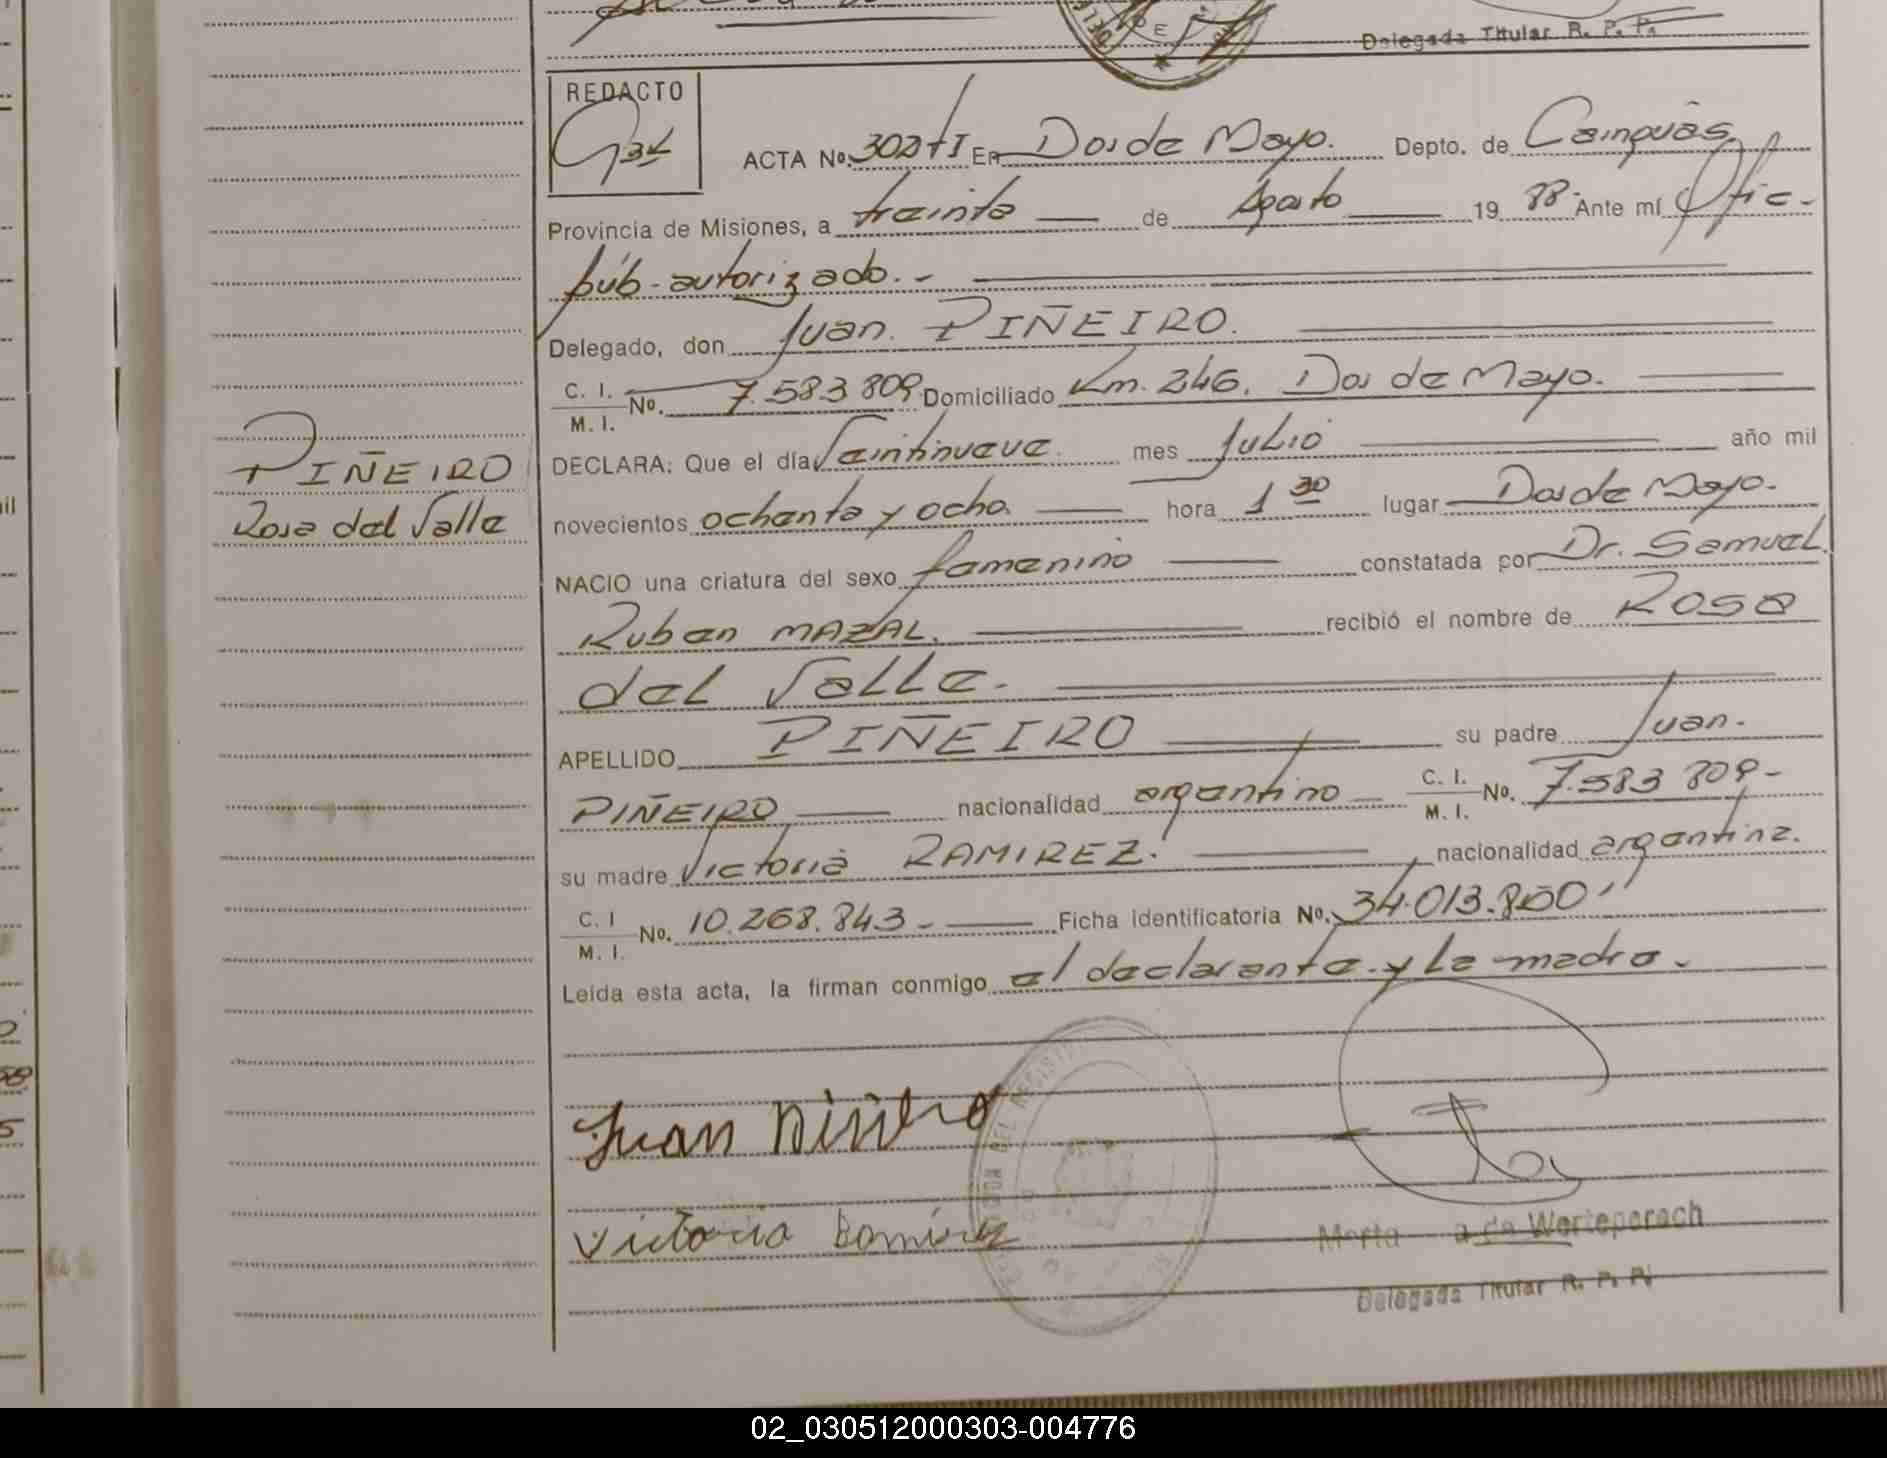 Delegada Titular R. P. P.
REDACTO
ACTA No. 302 tI En Dos de Mayo. Depto. de Cainguás
Provincia de Misiones, a treinta de Agosto 19 88 Ante mí Ofic.
púb. autorizado.-
Delegado, don Juan. PIÑEIRO.
C. I. / M. I. No. 7.583 809 Domiciliado Km. 246. Dos de Mayo.
DECLARA: Que el día Veintinueve mes Julio año mil
novecientos ochenta y ocho. hora 1 30 lugar Dos de Mayo.
NACIO una criatura del sexo femenino constatada por Dr. Samuel
Ruben MAZAL. recibió el nombre de Rosa
del Valle.
APELLIDO PIÑEIRO su padre Juan.
PIÑEIRO nacionalidad argentino C. I. / M. I. No. 7.583 809-
su madre Victoria RAMIREZ. nacionalidad argentina.
C. I / M. I. No. 10.268.843- Ficha identificatoria No. 34.013.800
Leída esta acta, la firman conmigo el declarante y la madre.
PIÑEIRO
Rosa del Valle
Juan Piñeiro
Victoria Ramirez
de Werteperach
Delegada Titular R. P. P.
02_030512000303-004776